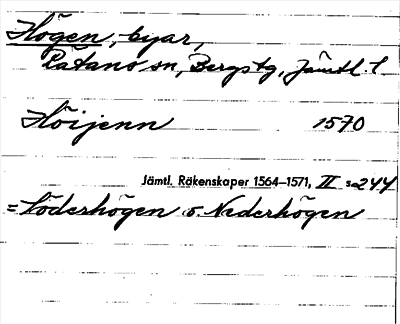 Högen, byar,
Rätans sn, Bergs tg, Jämtl. l
Höijenn 1570
Jämtl. Räkenskaper 1564–1571, II s. 244
= Söderhögen o. Nederhögen